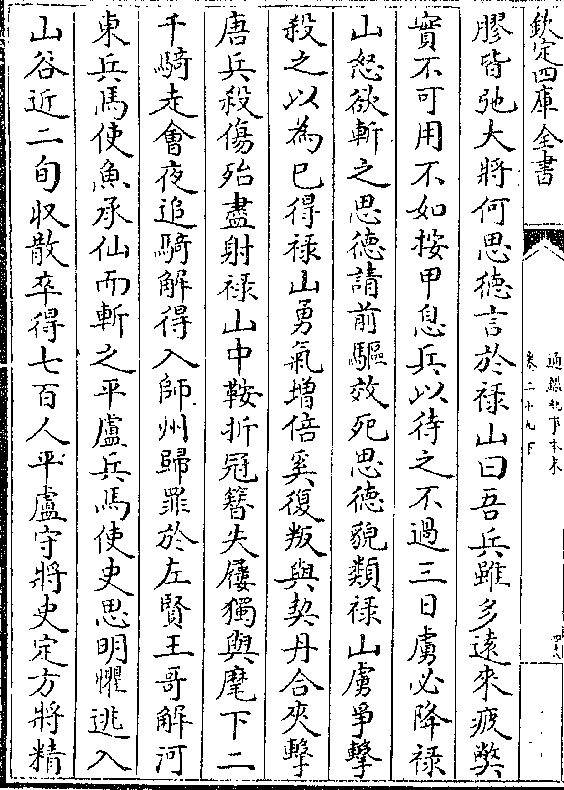 欽定四庫全書
通鑑紀事本末
卷二十九下
膠皆弛大將何思徳言於禄山曰吾兵雖多逺來疲弊
實不可用不如按甲息兵以待之不過三日虜必降禄
山怒欲斬之思徳請前驅效死思徳貌類禄山虜爭擊
殺之以為已得禄山勇氣增倍奚復叛與契丹合夾擊
唐兵殺傷殆盡射禄山中鞍折冠簪失屨獨與麾下二
千騎走會夜追騎解得入師州歸罪於左賢王哥解河
東兵馬使魚承仙而斬之平盧兵馬使史思明懼逃入
山谷近二旬収散卒得七百人平盧守將史定方將精